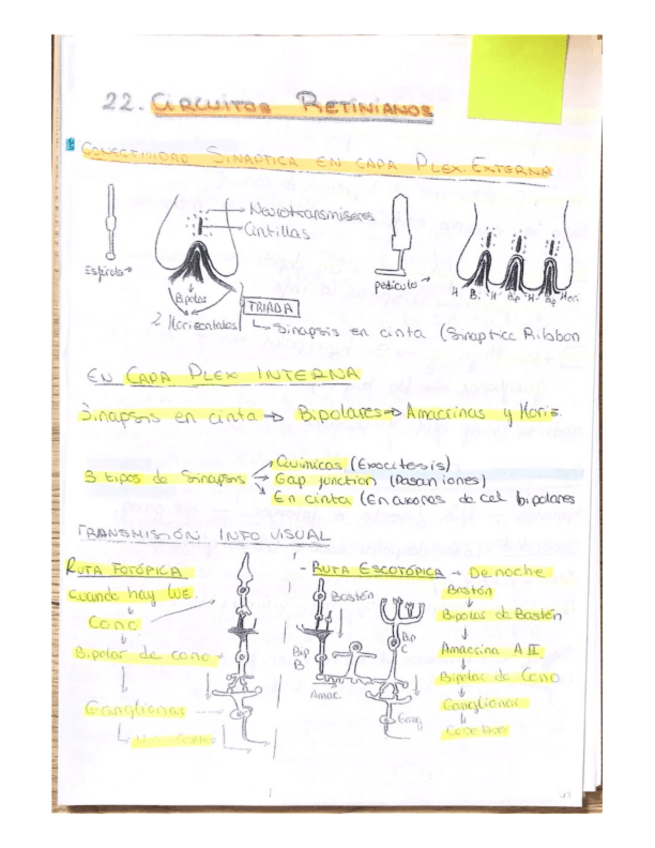 22. CIRCUITOS RETINIANOS
CONECTIVIDAD SINAPTICA EN CAPA PLEX. EXTERNA
Neurotransmisores
Cintillas
Esférula
pedículo
Bipolar
2 Horizontales
TRIADA
H Bi H Bp H Bp Hori
Sinapsis en cinta (Sinaptic Ribbon
EN CAPA PLEX INTERNA
Sinapsis en cinta → Bipolares → Amacrinas y Horiz.
3 tipos de Sinapsis
Químicas (Exocitosis)
Gap junction (Pasan iones)
En cinta (En axones de cel bipolares
TRANSMISIÓN INFO VISUAL
RUTA FOTÓPICA
Cuando hay LUZ.
↓
Cono
↓
Bipolar de cono
↓
Ganglionar
- RUTA ESCOTÓPICA → De noche
Bastón
Bip B
Amac
Bip C
Gang
Bastón
↓
Bipolar de Bastón
↓
Amacrina A II
↓
Bipolar de Cono
↓
Ganglionar
↓
Cerebro